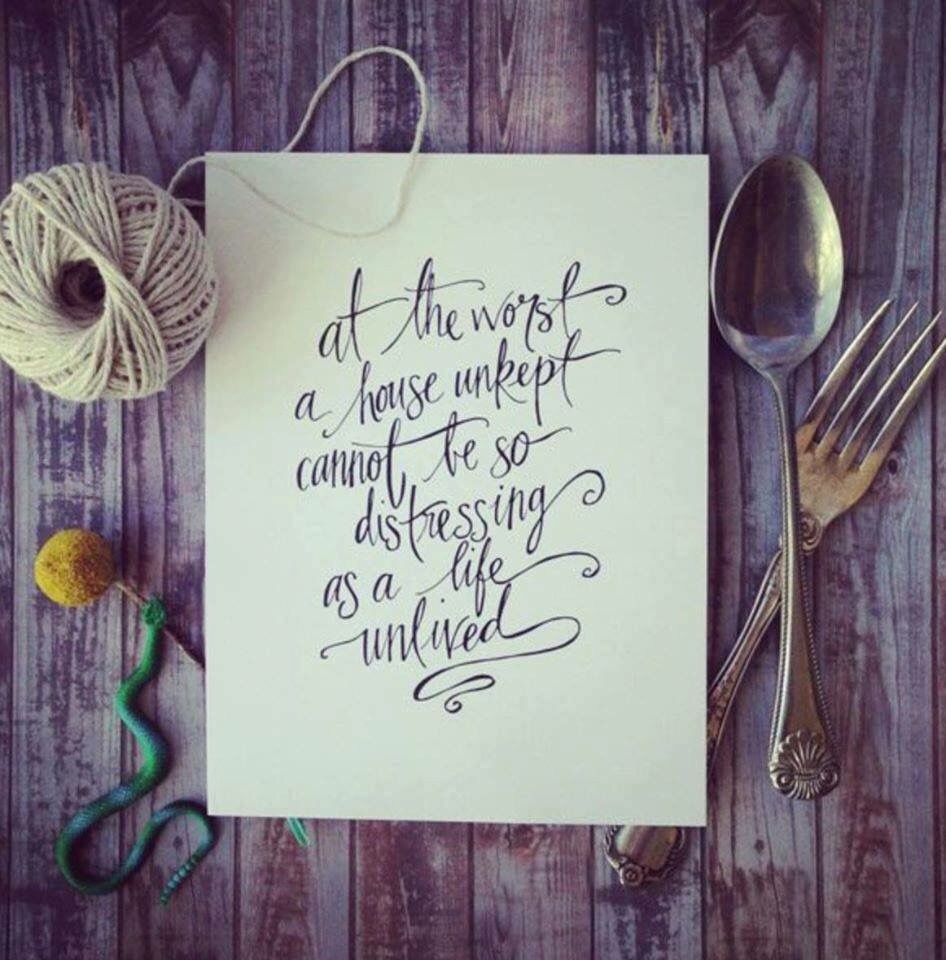 at the worst
a house unkept
cannot be so
distressing
as a life
unlived